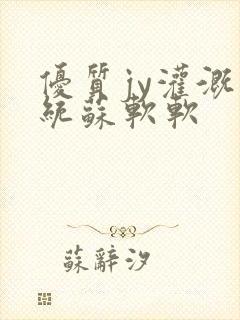 優質jy灌溉
統蘇軟軟
蘇辭汐